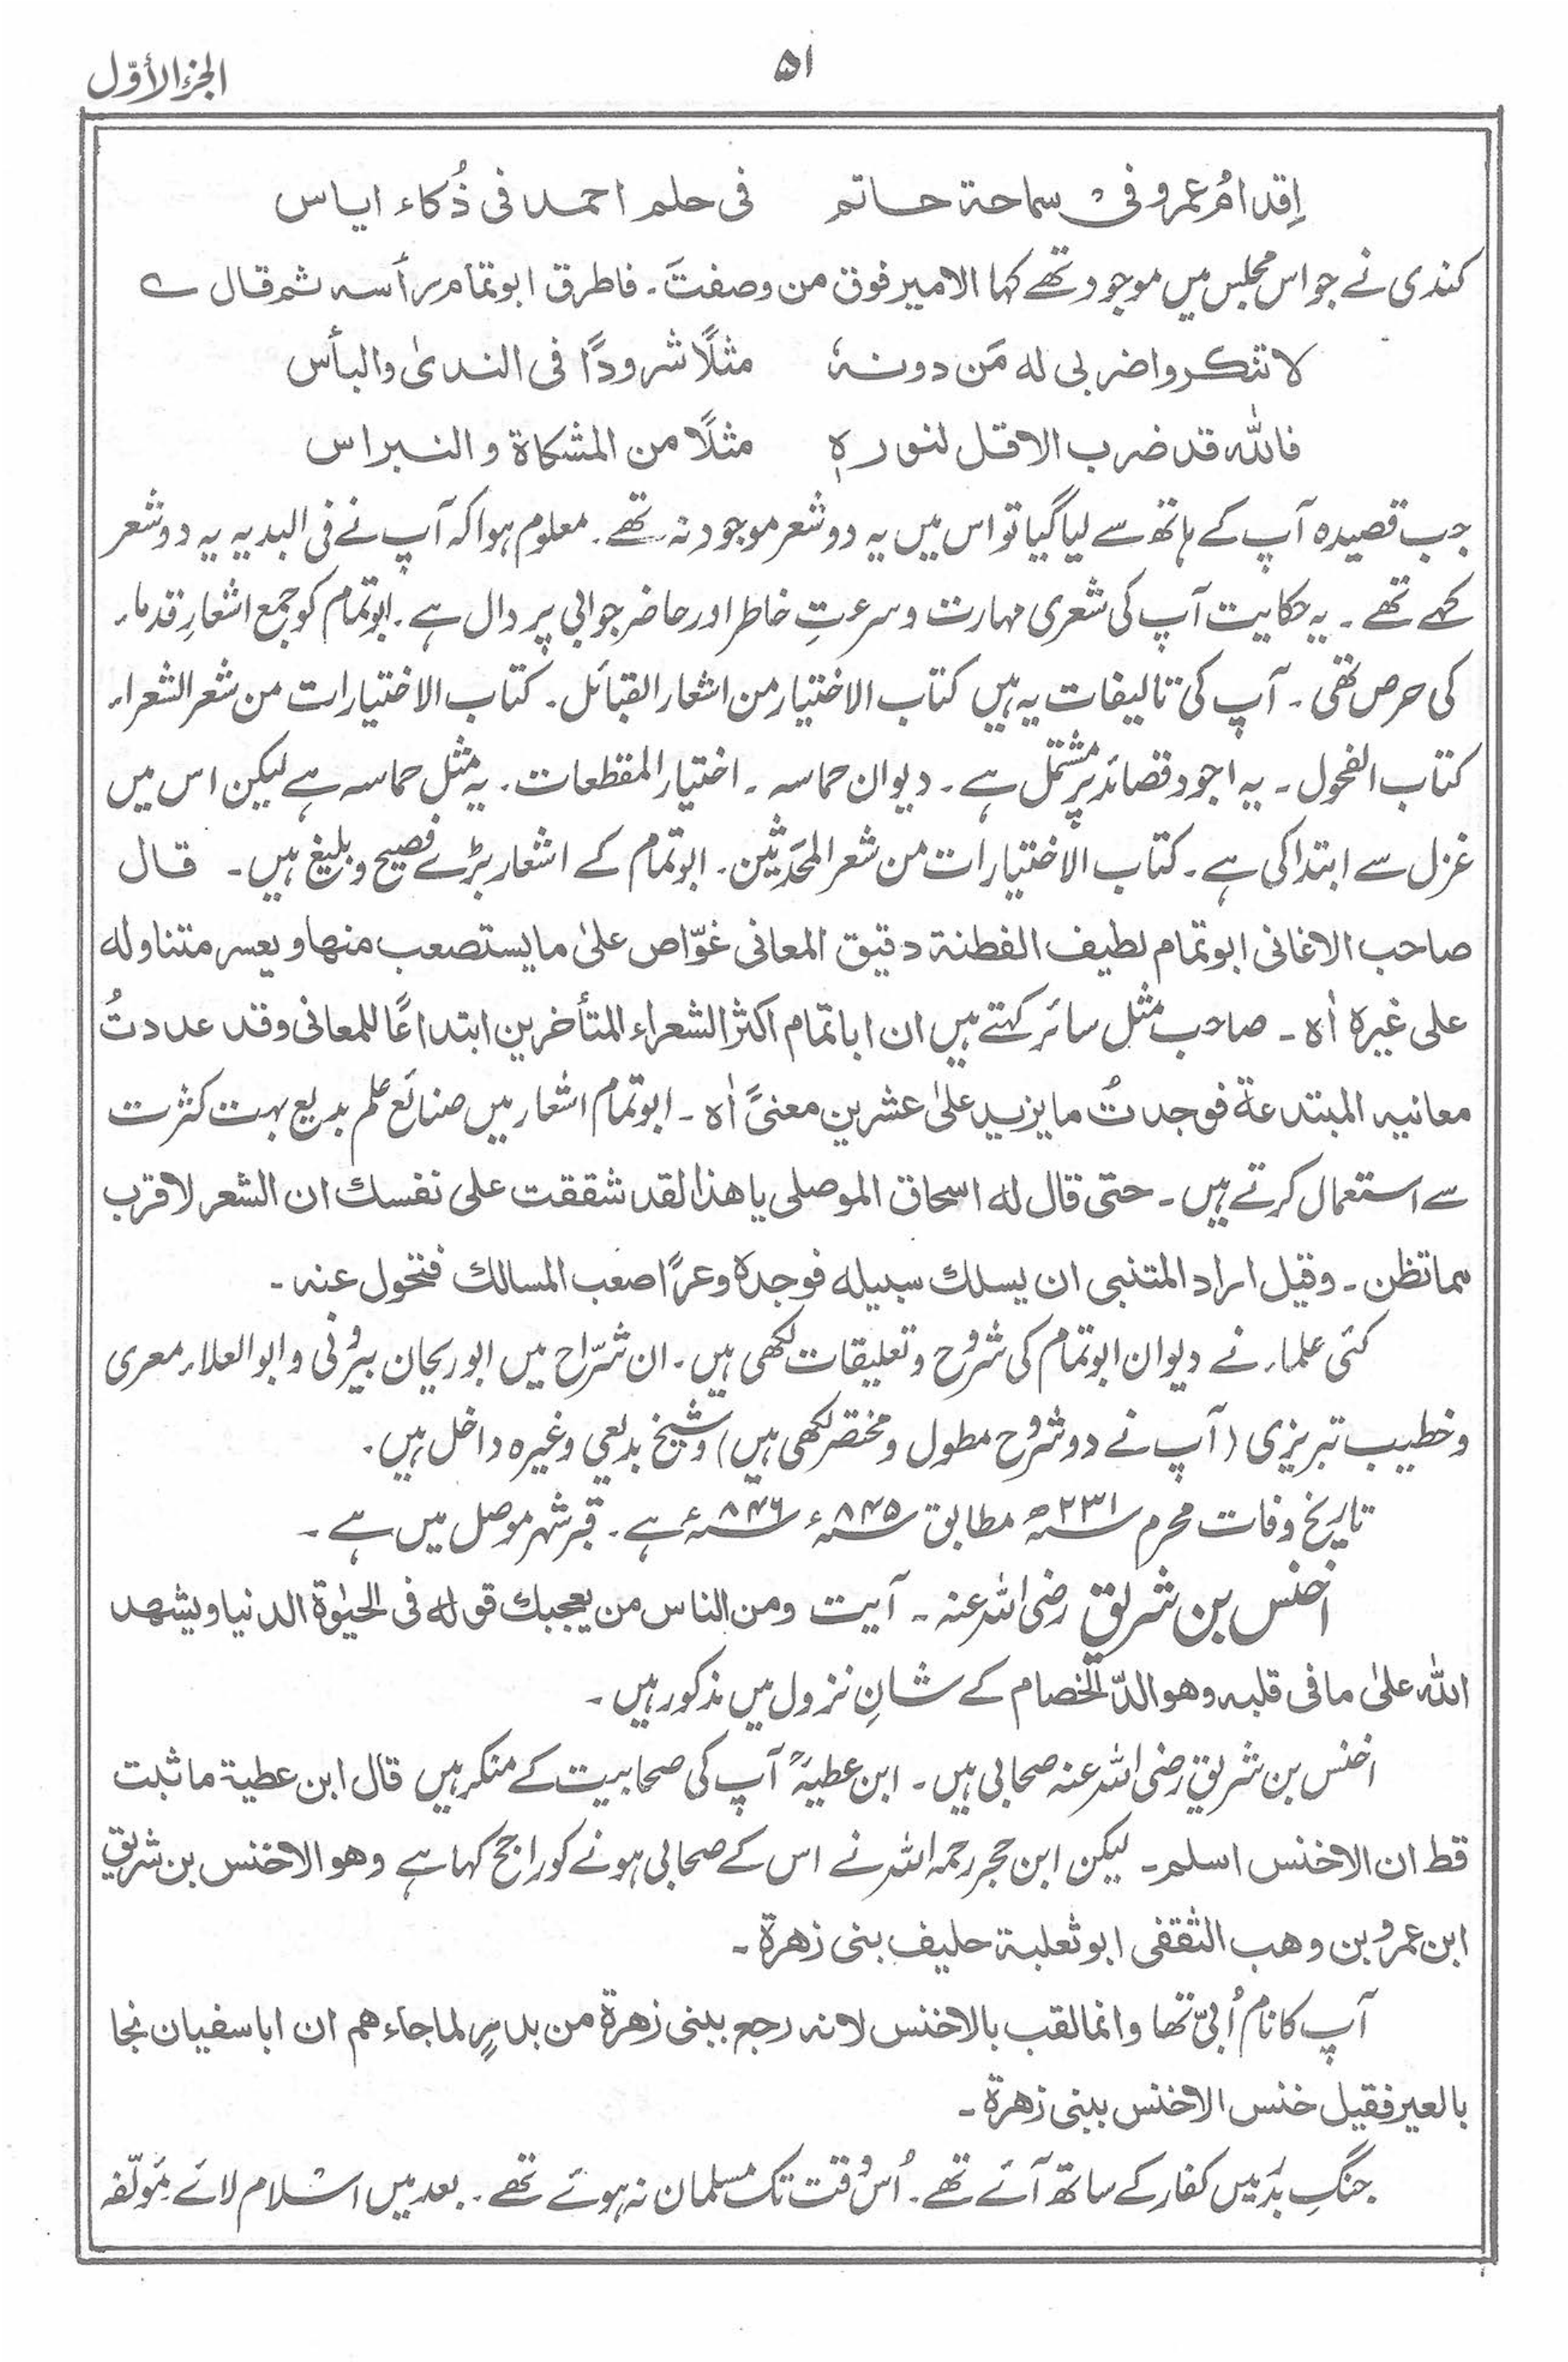 الجزء الأوّل
۵۱
اِقدامُ عمرو فی سماحة حاتم فی حلم احمد فی ذُکاء ایاس
کندی نے جو اس مجلس میں موجود تھے کہا الامیر فوق من وصفتَ۔ فاطرق ابوتمّام رأسه ثم قال ے
لا تنکروا ضربی له مَن دونهٗ مثلًا شرودًا فی الندیٰ والبأس
فاللّٰہ قد ضرب الاقل لنورہٖ مثلًا من المشکاة و النبراس
جب قصیدہ آپ کے ہاتھ سے لیا گیا تو اس میں یہ دو شعر موجود نہ تھے۔ معلوم ہوا کہ آپ نے فی البدیہ یہ دو شعر
کہے تھے۔ یہ حکایت آپ کی شعری مہارت و سرعتِ خاطر اور حاضر جوابی پر دال ہے۔ ابوتمام کو جمع اشعارِ قدماء
کی حرص تھی۔ آپ کی تالیفات یہ ہیں کتاب الاختیار من اشعار القبائل۔ کتاب الاختیارات من شعر الشعراء
کتاب الفحول۔ یہ اجود قصائد پر مشتمل ہے۔ دیوان حماسہ۔ اختیار المقطعات۔ یہ مثل حماسہ ہے لیکن اس میں
غزل سے ابتدا کی ہے۔ کتاب الاختیارات من شعر المحَدثین۔ ابوتمام کے اشعار بڑے فصیح و بلیغ ہیں۔ قال
صاحب الاغانی ابوتمام لطیف الفطنة دقیق المعانی غوّاص علیٰ ما یستصعب منها و یعسر متناوله
علی غیرہ اٰہ۔ صاحب مثل سائر کہتے ہیں ان اباتمام اکثر الشعراء المتأخرین ابتداعًا للمعانی وقد عددتُ
معانیه المبتدعة فوجدتُ ما یزید علیٰ عشرین معنیً اٰہ۔ ابوتمام اشعار میں صنائع علم بدیع بہت کثرت
سے استعمال کرتے ہیں۔ حتی قال له اسحاق الموصلی یا هذا لقد شققت علی نفسك ان الشعر لاقرب
مما تظن۔ وقیل اراد المتنبی ان یسلك سبیله فوجدہ وعرًا صعب المسالك فتحول عنه۔
کئی علماء نے دیوان ابوتمام کی شروح و تعلیقات لکھی ہیں۔ ان شرّاح میں ابوریحان بیرونی و ابوالعلاء معری
و خطیب تبریزی (آپ نے دو شروح مطول و مختصر لکھی ہیں) و شیخ بدیعی وغیرہ داخل ہیں۔
تاریخ وفات محرم سنہ ۲۳۱ھ مطابق سنہ ۸۴۵ء سنہ ۸۴۶ء ہے۔ قبر شہر موصل میں ہے۔
اخنس بن شریق رضی اللہ عنہ۔ آیت ومن الناس من یعجبك قوله فی الحیٰوة الدنیا ویشهد
اللّٰہ علیٰ ما فی قلبه وهو الدّ الخصام کے شانِ نزول میں مذکور ہیں۔
اخنس بن شریق رضی اللہ عنہ صحابی ہیں۔ ابن عطیہؒ آپ کی صحابیت کے منکر ہیں قال ابن عطیة ما ثبت
قط ان الاخنس اسلم۔ لیکن ابن حجر رحمہ اللہ نے اس کے صحابی ہونے کو راجح کہا ہے وهو الاخنس بن شریق
ابن عمرو بن وهب الثقفی ابوثعلبة حلیف بنی زهرة۔
آپ کا نام اُبَیّ تھا وانما لقب بالاخنس لانه رجع ببنی زهرة من بدرٍ لما جاءهم ان اباسفیان نجا
بالعیر فقیل خنس الاخنس ببنی زهرة۔
جنگِ بدر میں کفار کے ساتھ آئے تھے۔ اُس وقت تک مسلمان نہ ہوئے تھے۔ بعد میں اسلام لائے مؤلّفہ